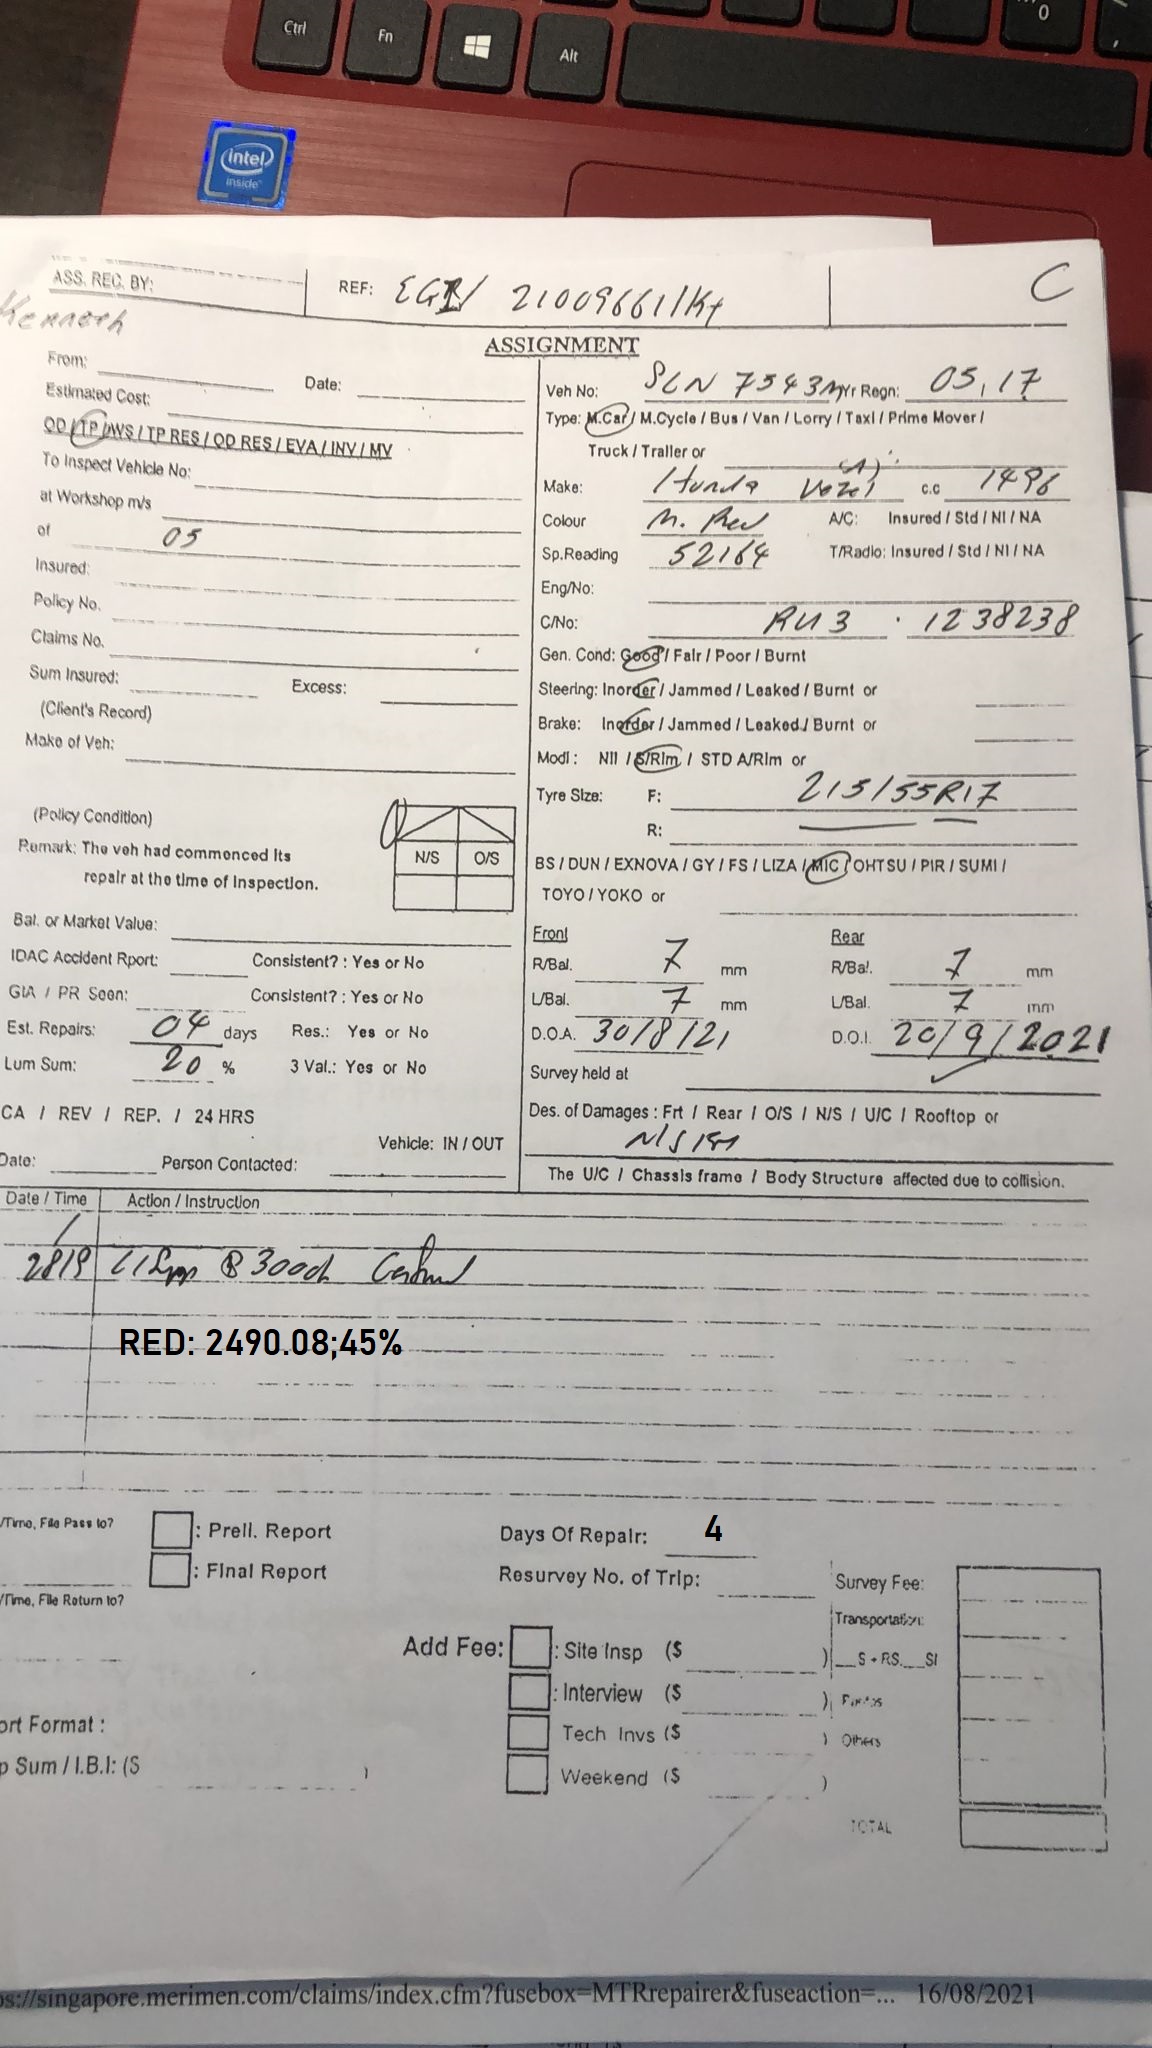 Ctrl
Fn
Alt
0
intel
inside
ASS. REC. BY:
Kenneth
REF: EGI/ 21009661/Kt
C
ASSIGNMENT
From:
Date:
Estimated Cost:
OD / TP / WS / TP RES / OD RES / EVA / INV / MV
To Inspect Vehicle No:
at Workshop m/s
of 05
Insured:
Policy No.
Claims No.
Sum Insured:
Excess:
(Client's Record)
Make of Veh:
(Policy Condition)
Remark: The veh had commenced its
repair at the time of inspection.
N/S O/S
Bal. or Market Value:
IDAC Accident Rport: Consistent? : Yes or No
GIA / PR Seen: Consistent? : Yes or No
Est. Repairs: 04 days Res.: Yes or No
Lum Sum: 20 % 3 Val.: Yes or No
CA / REV / REP. / 24 HRS
Vehicle: IN / OUT
Date: Person Contacted:
Veh No: SLN 7543M Yr Regn: 05, 17
Type: M.Car / M.Cycle / Bus / Van / Lorry / Taxi / Prime Mover /
Truck / Trailer or
(A)
Make: Honda Vezel c.c 1496
Colour M. Red A/C: Insured / Std / NI / NA
Sp.Reading 52164 T/Radio: Insured / Std / NI / NA
Eng/No:
C/No: RU3 . 1238238
Gen. Cond: Good / Fair / Poor / Burnt
Steering: Inorder / Jammed / Leaked / Burnt or
Brake: Inorder / Jammed / Leaked / Burnt or
Modi : Nil / S/Rim / STD A/Rim or
Tyre Size: F: 215/55R17
R:
BS / DUN / EXNOVA / GY / FS / LIZA / MIC / OHTSU / PIR / SUMI /
TOYO / YOKO or
Front Rear
R/Bal. 7 mm R/Bal. 7 mm
L/Bal. 7 mm L/Bal. 7 mm
D.O.A. 30/8/21 D.O.I. 20/9/2021
Survey held at
Des. of Damages : Frt / Rear / O/S / N/S / U/C / Rooftop or
N/S
The U/C / Chassis frame / Body Structure affected due to collision.
Date / Time Action / Instruction
28/9
RED: 2490.08;45%
/Time, File Pass to?
: Prell. Report
: Final Report
Days Of Repair: 4
Resurvey No. of Trip:
/Time, File Return to?
Survey Fee:
Transportation:
__S + RS.__SI
Add Fee:
: Site Insp ($ )
: Interview ($ )
Tech Invs ($ )
Others
Weekend ($ )
ort Format :
p Sum / I.B.I: ($ )
TOTAL
ps://singapore.merimen.com/claims/index.cfm?fusebox=MTRrepairer&fuseaction=... 16/08/2021